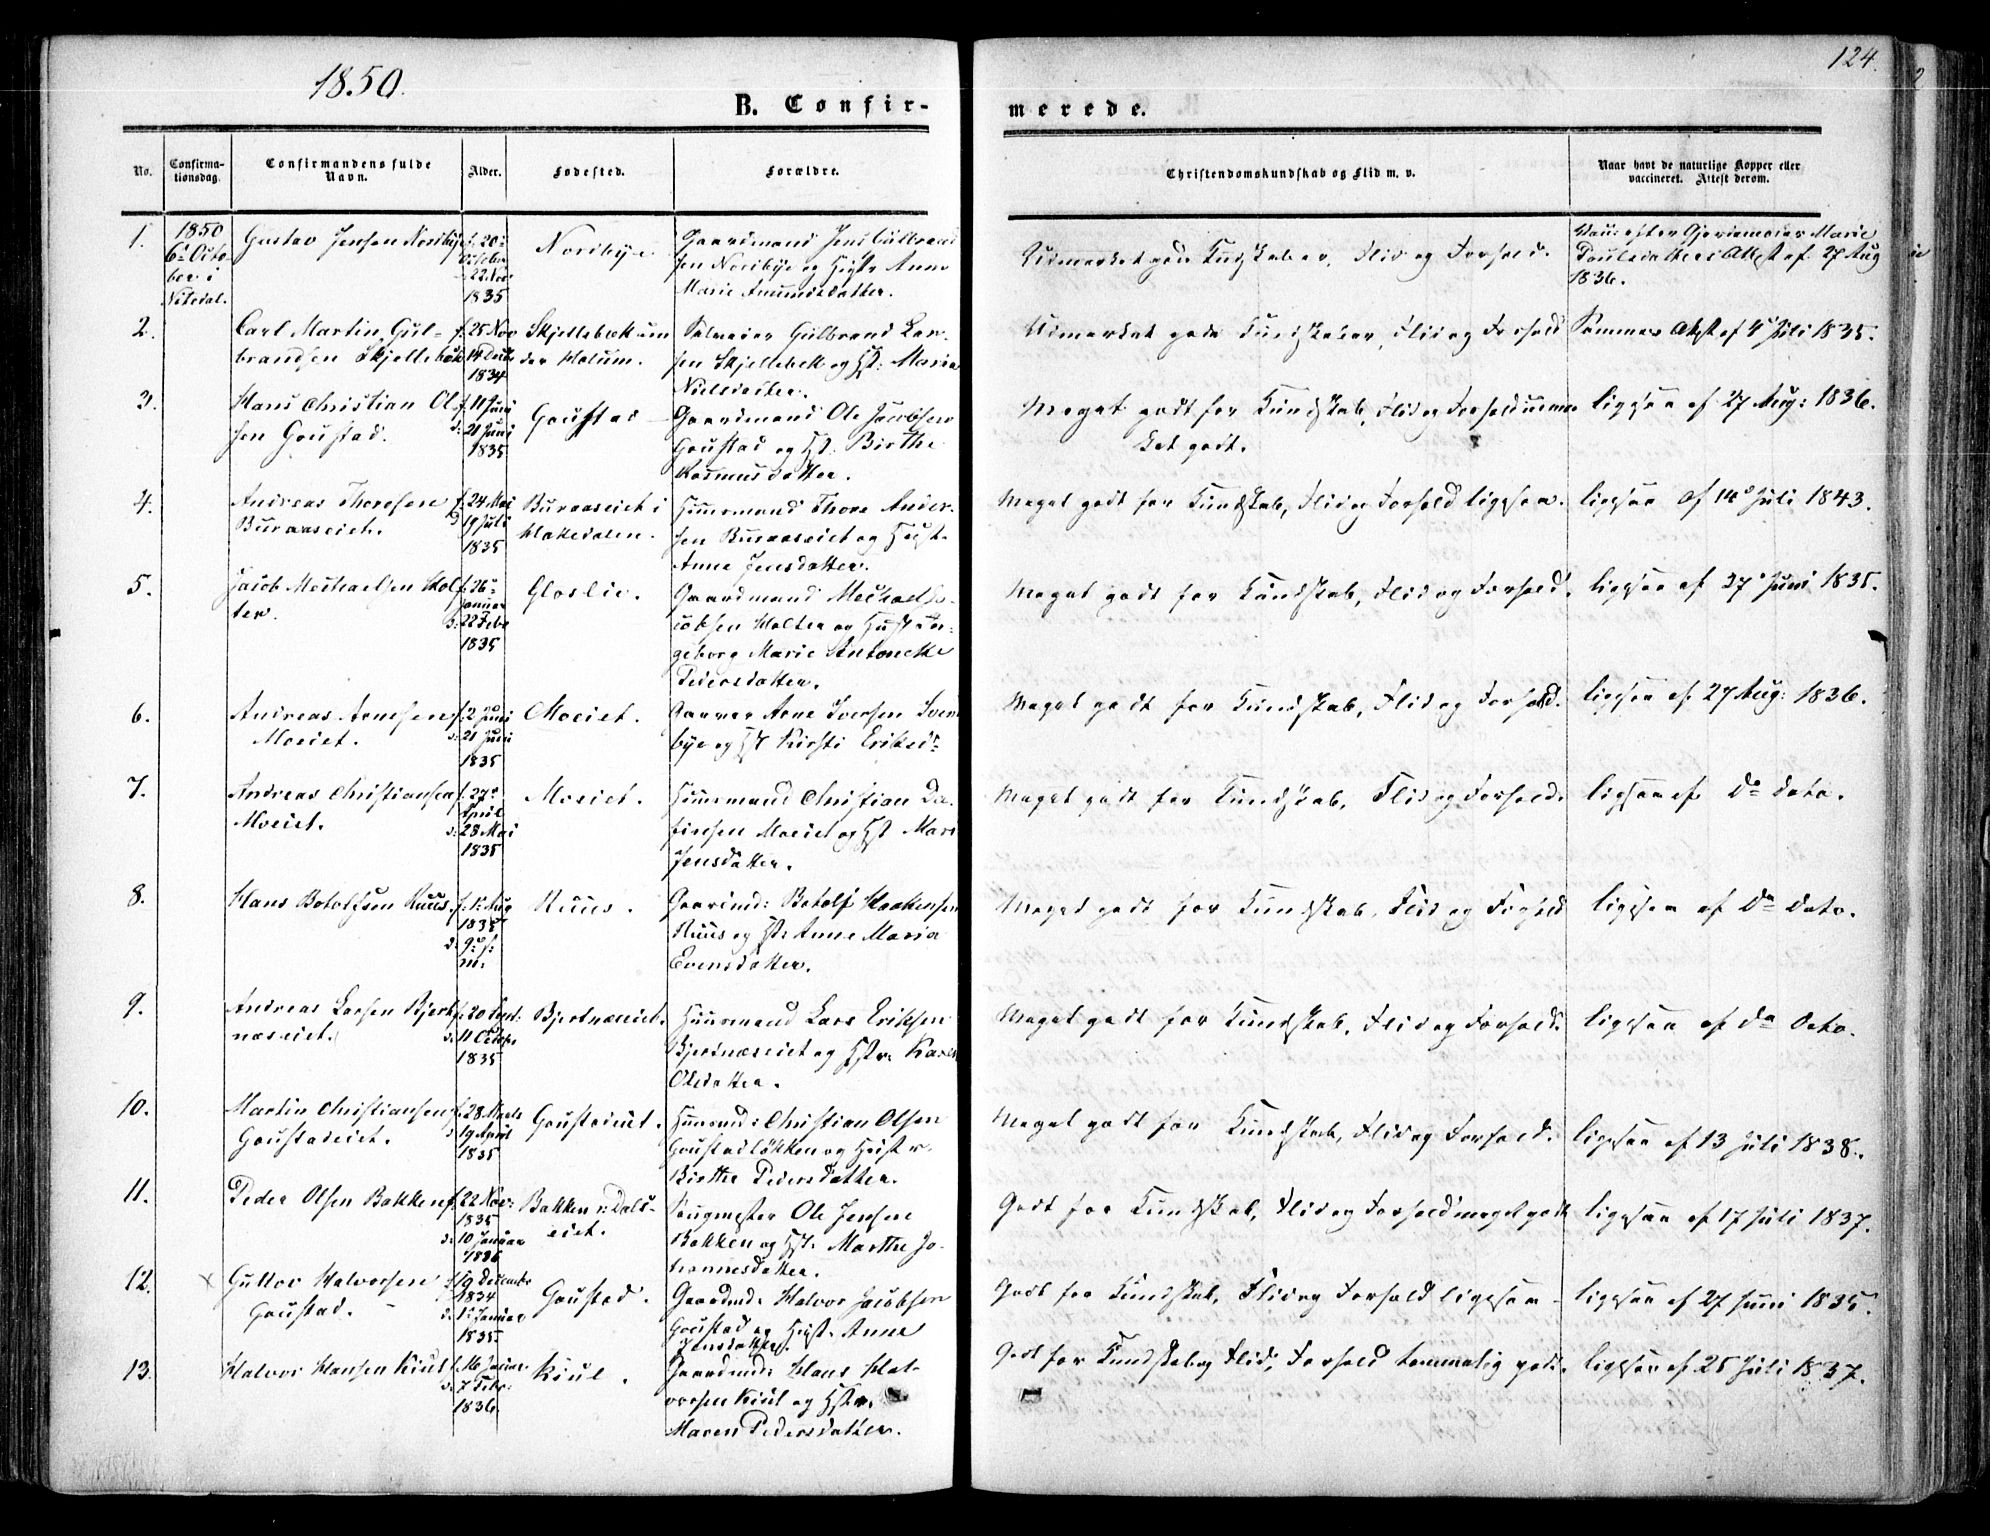 1850.
B. Confir-
merede.
124.
No.
Confirma-
tionsdag.
Confirmandens fulde
Navn.
Alder.
Fødested.
Forældre.
Christendomskundskab og Flid m. v.
Naar havt de naturlige Kopper eller
vaccineret. Attest derom.
1.
1850
6te Octo-
ber i
Nitedal.
Gustav Jensen Nordbye
f. 20de
October
22 Nov
1835
Nordbye.
Gaardmand Jens Gulbrand
sen Nordbye og Hustr Anne
Marie Amundsdatter.
Udmærket gode Kundskaber, Flid og Forhold.
Gjordemoder Marie
Poulsdatters Attest af 27 Aug
1836.
2.
Carl Martin Gul-
brandsen Skjellebæk
f. 25 Nov
14 Decbr
1834
Skjellebæk un
der Holum.
Selveier Gulbrand Lar-
sen Skjellebek og Hst: Maria
Nielsdatter.
Udmærket gode Kundskaber, Flid og Forhold
Sammes Attest af 4de Juli 1835.
3.
Hans Christian Ol-
sen Goustad.
f. 11 Juni
d. 21 Juni
1835
Goustad
Gaardmand Ole Jacobsen
Goustad og Hst. Birthe
Rasmusdatter.
Meget godt for Kundskab, Flid og Forhold udmær-
ket godt.
ligesaa af 27 Aug: 1836.
4.
Andreas Thoresen
Buraaseiet.
f. 24 Mai
d. 19 Juli
1835
Buraaseiet i
Hakedalen.
Huusmand Thore Ander-
sen Buraaseiet og Hust.
Anne Jensdatter.
Meget godt for Kundskab, Flid og Forhold ligesaa.
ligesaa af 14de Juli 1843.
5.
Jacob Mechaelsen Hol
ter.
f. 26de
Januar
d: 22 Febr
1835
Gloslie.
Gaardmand Mechael Ja-
cobsen Holter og Hustr In-
geborg Marie Antonette
Pedersdatter.
Meget godt for Kundskab, Flid og Forhold.
ligesaa af 27de Juni 1835.
6.
Andreas Arnesen
Moeiet.
f. 2 Juni
d: 21 Juni
1835
Moeiet.
Arne Iversen Sven
bye og Hst Kirsti Eriksdr
Meget godt for Kundskab, Flid og Forhold.
ligesaa af 27 Aug: 1836.
7.
Andreas Christiansen
Moeiet.
f. 27de
April
d: 28 Mai
1835
Moeiet.
Huusmand Christian Da-
Moeiet og Hst Mari
Jensdatter.
Meget godt for Kundskab, Flid og Forhold.
ligesaa af Do Dato.
8.
Hans Botolfsen Ruus.
f. 1ste Aug
1835
d. 9de s.
m.
Ruus.
Gaardmd: Botolf Haakensen
Ruus og Hst: Anne Maria
Evensdatter.
Meget godt for Kundskab, Flid og Forhold
ligesaa af Do Dato.
9.
Andreas Larsen Bjert
næseiet.
f. 20 Sept:
d: 11 Octbr
1835
Bjertnæseiet.
Huusmand Lars Eriksen
Bjertnæseiet og Hstr: Karen
Olesdatter.
Meget godt for Kundskab, Flid og Forhold.
ligesaa af Do Dato.
10.
Martin Christiansen
Goustadeiet.
f. 28 Marts
d: 19 April
1835
Goustadeiet.
Huusmd: Christian Olsen
Goustadløkken og Hustr.
Birthe Pedersdatter.
Meget godt for Kundskab, Flid og Forhold.
ligesaa af 13 Juli 1838.
11.
Peder Olsen Bakken
f. 22 Nov:
1835
d: 10 Januar
1836
Bakken u: Dals-
eiet.
Saugmester Ole Jensen
Bakken og Hst: Marthe Jo-
hannesdatter.
Godt for Kundskab, Flid og Forhold meget godt
ligesaa af 17 Juli 1837.
12.
x
Guttor Halvorsen
Goustad.
f. 19 December
1834
d: 1ste Januar
1835
Goustad.
Gaardmd: Halvor Jacobsen
Goustad og Hust. Anne
Jensdatter.
Godt for Kundskab, Flid og Forhold ligesaa
ligesaa af 27 Juni 1835.
13.
Halvor Hansen Kiul
f. 16 Januar
d: 7 Febr:
1836.
Kiul.
Gaardmd: Hans Hal-
vorsen Kiul og Hstr.
Maren Pedersdatter.
Godt for Kundskab og Flid, Forhold temmelig godt.
ligesaa af 25 Juli 1837.